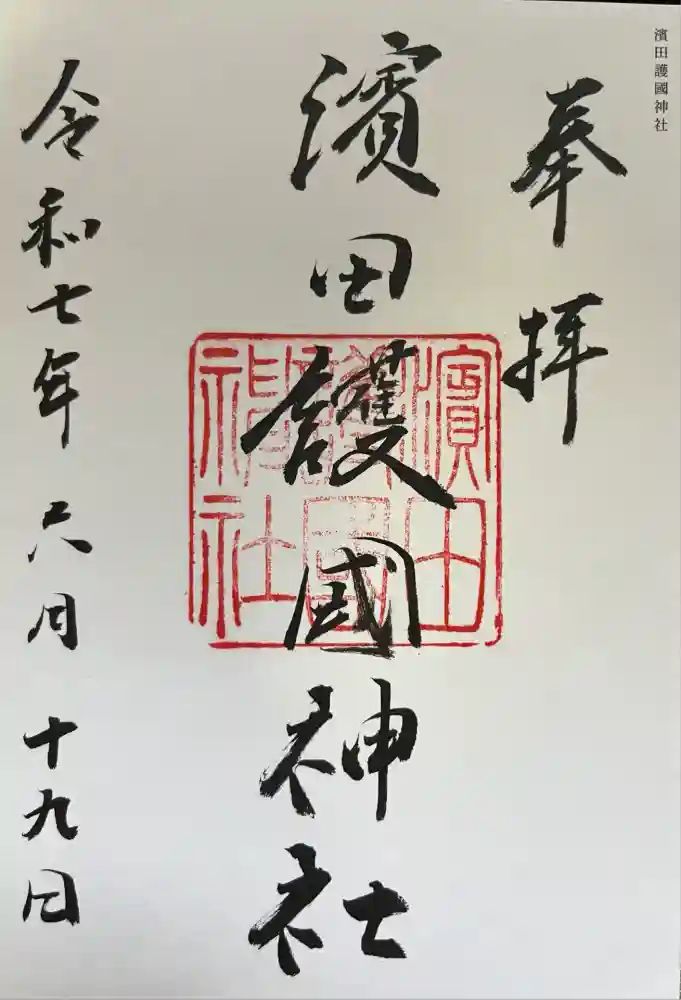 濱田護國神社
奉拝
濱田護國神社
濱田
護國
神社
令和七年六月十九日